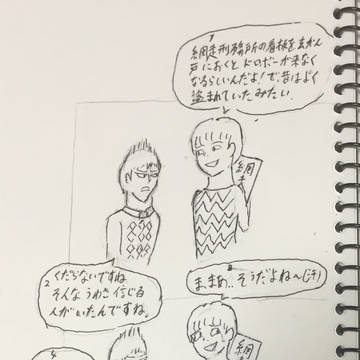 1
網走刑務所の看板を玄かん
戸におくとドロボーが来なく
なるらしいんだよ！で、昔はよく
盗まれていたみたい。
網走
2
くだらないですね
そんなうわさ信じる
人がいたんですね。
3
ま、まぁ..そうだよね〜(汗)
4
網走